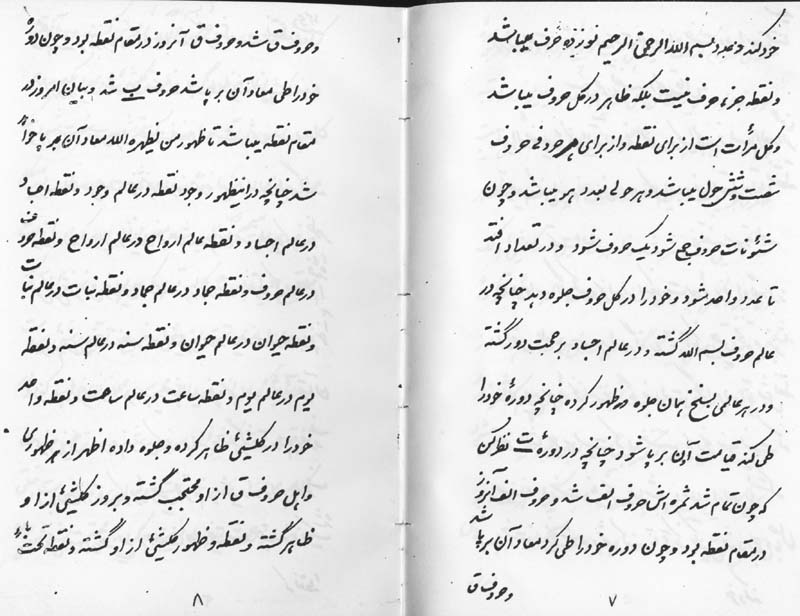 خود کند و بعدد بسم الله الرحمن الرحیم نوزده حرف میباشد
و نقطه جزء حرف نیست بلکه ظاهر در کل حروف میباشد
و کل مرآت است از برای نقطه و از برای هر حرفی حروف
شصت و شش حول میباشد و هر حولی بعدد هو میباشد و چون
شئونات حروف جمع شود یک حروف شود و در تعداد افتد
تا عدد واحد شود و خود را در کل حروف جلوه دهد چنانچه در
عالم حروف بسم الله گشته و در عالم اجساد بر حجت دور گشته
و در هر عالمی بسنخ همان جلوه و ظهور کرده چنانچه دورهٔ خود را
طی کند قیامت آن بر پا شود چنانچه در دورهٔ ت نظر کن
که چون تمام شد ثمره اش حروف الف شد و حروف الف آنروز
در مقام نقطه بود و چون دوره خود را طی کرد معاد آن بر پا شد
و حروف ق
۷
و حروف ق شد و حروف ق آنروز در مقام نقطه بود و چون دورهٔ
خود را طی معاد آن بر پا شد حروف ب شد و بیان امروز در
مقام نقطه میباشد تا ظهور من یظهره الله معاد آن بر پا خواهد
شد چنانچه در اینظهور وجود نقطه در عالم وجود و نقطه اجساد
در عالم اجساد و نقطه عالم ارواح در عالم ارواح و نقطه حروف
در عالم حروف و نقطه جماد در عالم جماد و نقطه نبات در عالم نبات
و نقطه حیوان در عالم حیوان و نقطه سنه در عالم سنه و نقطه
یوم در عالم یوم و نقطه ساعت در عالم ساعت و نقطه واحد
خود را در کلشیئ ظاهر کرده و جلوه داده اظهر از هر ظهوری
و اهل حروف ق از او محتجب گشته و بروز کلشیئ از او
ظاهر گشته و نقطه و ظهور کلشیئ از او گشته و نقطه تحت باء
۸